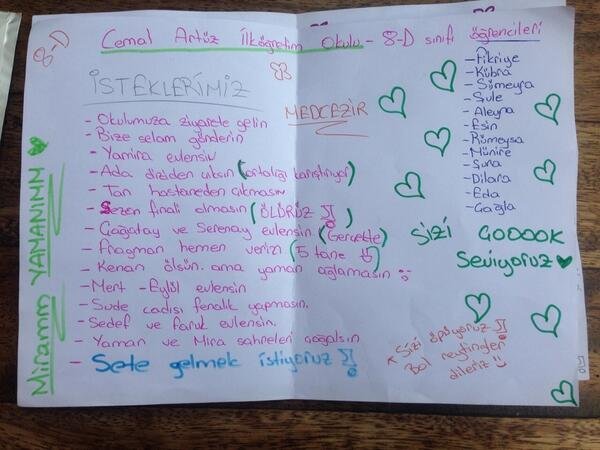 8-D
Cemal Artüz İlköğretim Okulu - 8-D sınıfı öğrencileri
İSTEKLERİMİZ
MEDCEZİR
- Okulumuza ziyarete gelin
- Bize selam gönderin
- Yamira evlensin
- Ada diziden çıksın (ortalığı karıştırıyor)
- Tan hastaneden çıkmasın
- Sezen finali olmasın (ÖLÜRÜZ !!)
- Çağatay ve Serenay evlensin (Gerçekte)
- Fragman hemen verin (5 tane)
- Kenan ölsün. ama yaman ağlamasın
- Mert - Eylül evlensin
- Sude cadısı fenalık yapmasın.
- Sedef ve faruk evlensin.
- Yaman ve Mira sahneleri çoğalsın
- Sete gelmek istiyoruz !!
Miramm YAMANIMM
- Fikriye
- Kübra
- Sümeyra
- Şule
- Aleyna
- Esin
- Rümeysa
- Münire
- Suna
- Dilara
- Eda
- Gazgla
SİZİ ÇOOOOK
Seviyoruz
Sizi öpüyoruz !!
Bol reytingler
dileriz